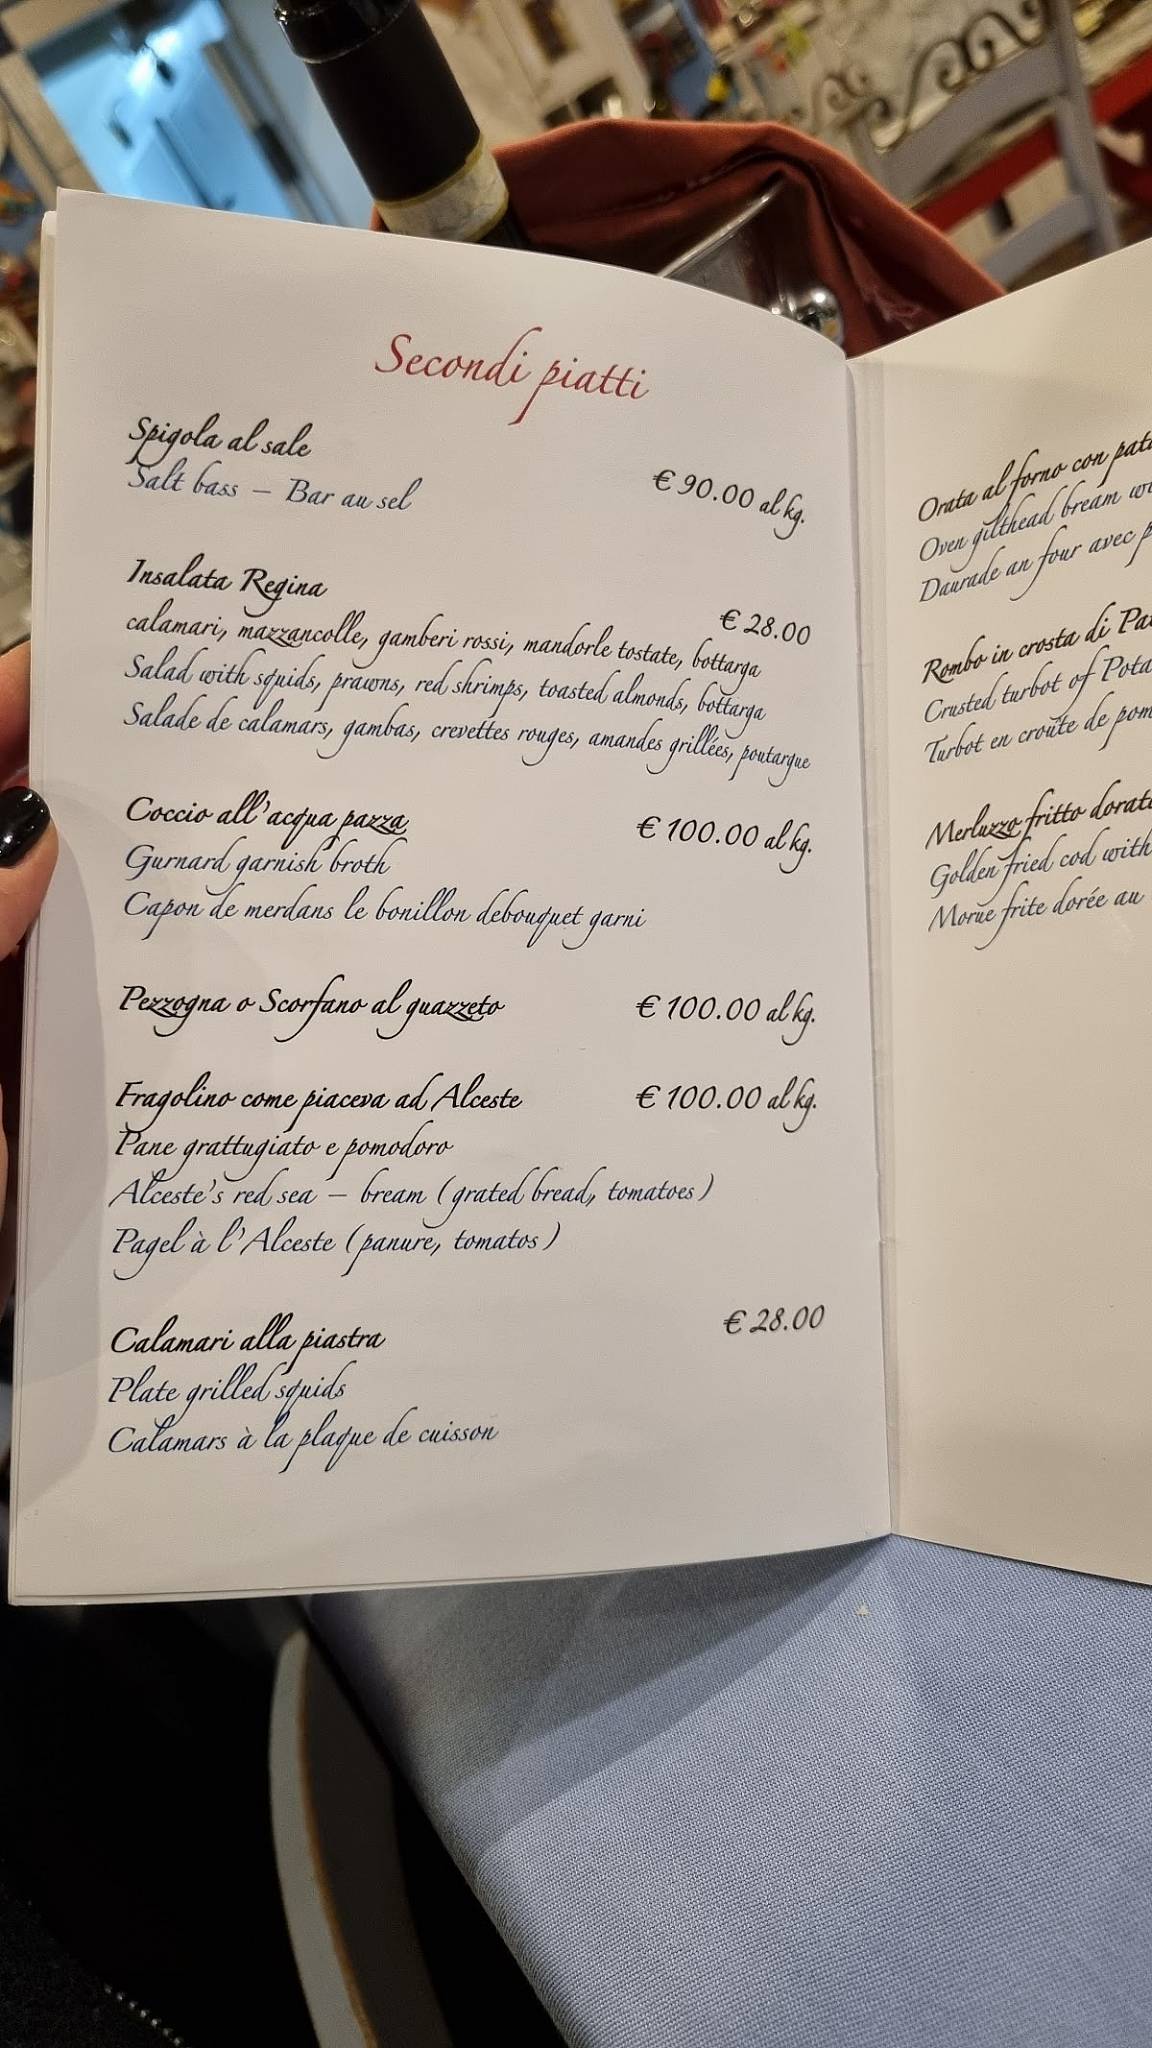 Secondi piatti
Spigola al sale
Salt bass – Bar au sel
€ 90.00 al kg.
Insalata Regina
€ 28.00
calamari, mazzancolle, gamberi rossi, mandorle tostate, bottarga
Salad with squids, prawns, red shrimps, toasted almonds, bottarga
Salade de calamars, gambas, crevettes rouges, amandes grillées, poutargue
Coccio all'acqua pazza
€ 100.00 al kg.
Gurnard garnish broth
Capon de merdans le bonillon debouquet garni
Pezzogna o Scorfano al guazzeto
€ 100.00 al kg.
Fragolino come piaceva ad Alceste
€ 100.00 al kg.
Pane grattugiato e pomodoro
Alceste's red sea – bream ( grated bread, tomatoes )
Pagel à l'Alceste ( panure, tomatos )
Calamari alla piastra
€ 28.00
Plate grilled squids
Calamars à la plaque de cuisson
Orata al forno con
Oven gilthead bream
Daurade an four avec
Rombo in crosta di
Crusted turbot of
Turbot en croûte de
Merluzzo fritto
Golden fried cod with
Morue frite dorée au